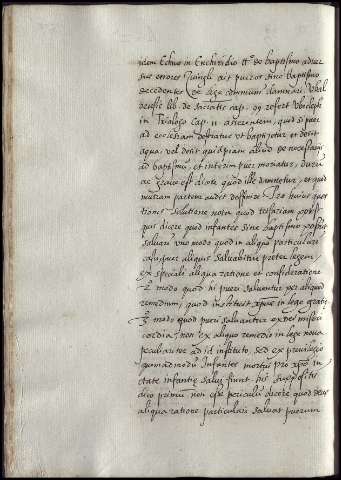 idem Echius in Enchiridio tt. de baptismo adver
sus errores Zuingli ait pueros sine baptismo
decedentes ex lege omnium damnari. Vbal
densis lib. de Sacratis cap. 99 refert Vbicleph
in Trialogo cap. 11 asserentem, quod si puer
ad ecclesiam deferatur ut baptizetur et desit
aqua, vel desit quidpiam aliud de necessariis
ad baptismū, et interim puer moriatur, durū
ac grave est dicere quod ille damnetur, et quod
nullam partem audet deffinire. Pro huius ques
tionis solutione nota quod trifariam possit
quis dicere quod infantes sine baptismo possint
salvari uno modo quod in aliquo particulari
casu puer aliquis salvabitur preter legem
ex speciali aliqua ratione et consideratione
2º modo quod hi pueri salventur per aliquod
remedium, quod instituit xpus in lege gratiæ
3º modo quod pueri salvantur ex dei miseri
cordia, non ex aliquo remedio in lege nova
peculiariter ad id instituto, sed ex privilegio
quemadmodū infantes mortui pro xpo in
ętate infantię salvi fiunt. his suppositis
dico primū non esse periculū dicere quod deus
aliqua ratione particulari salvat puerum